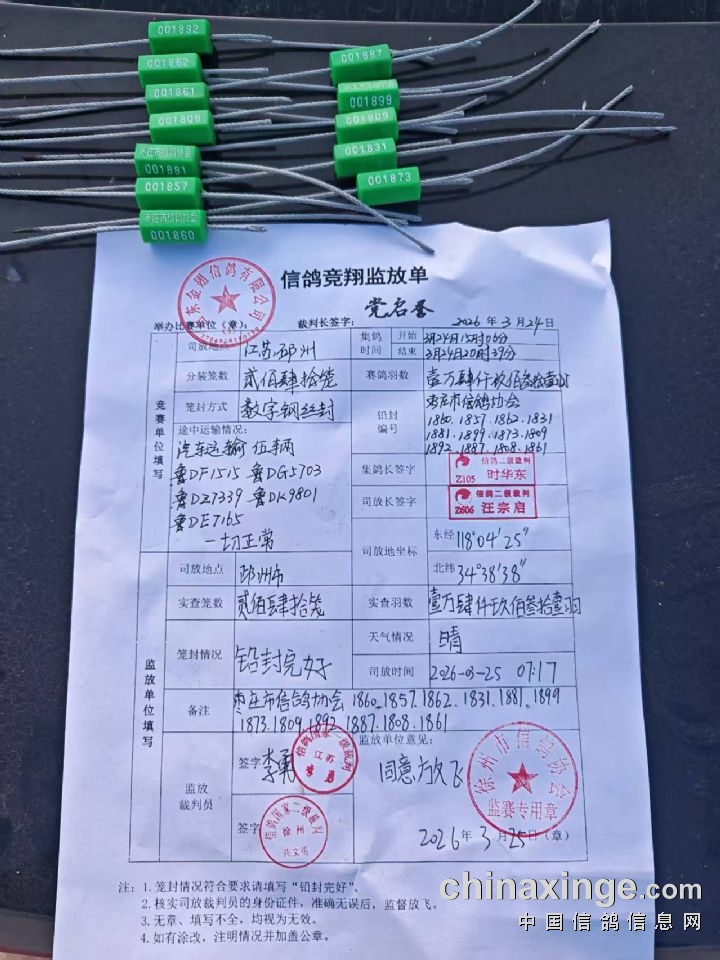 001892
001862
001861
001808
枣庄市信鸽协会
001881
001857
枣庄市信鸽协会
001860
001887
001899
001809
001831
001873
信鸽竞翔监放单
举办比赛单位（章）：
裁判长签字：
2026年3月24日
竞赛单位填写
司放地点 江苏邳州
集鸽时间 开始 3月24日15时06分
结束 3月24日20时39分
分装笼数 贰佰肆拾笼
赛鸽羽数 壹万肆仟玖佰叁拾壹羽
笼封方式 数字钢丝封
铅封编号 枣庄市信鸽协会
1860.1857.1862.1831
1881.1899.1873.1809
1892.1887.1808.1861
途中运输情况：
汽车运输 伍辆
鲁DF1515 鲁DG5703
鲁DZ7339 鲁DK9801
鲁DE7165
一切正常
集鸽长签字 信鸽二级裁判
Z105 时华东
司放长签字 信鸽二级裁判
Z606 汪宗启
司放地坐标 东经 118°04′25″
北纬 34°38′38″
监放单位填写
司放地点 邳州市
实查笼数 贰佰肆拾笼
实查羽数 壹万肆仟玖佰叁拾壹羽
笼封情况 铅封完好
天气情况 晴
司放时间 2026-03-25 07:17
备注 枣庄市信鸽协会 1860.1857.1862.1831.1881.1899
1873.1809.1892.1887.1808.1861
监放裁判员
签字 李勇
签字
监放单位意见：
同意放飞
徐州市信鸽协会
监赛专用章
2026年3月25日（章）
注：1.笼封情况符合要求请填写“铅封完好”。
2.核实司放裁判员的身份证件，准确无误后，监督放飞。
3.无章、填写不全，均视为无效。
4.如有涂改，注明情况并加盖公章。
chinaxinge.com
中国信鸽信息网